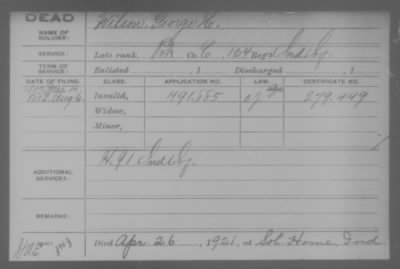 DEAD
NAME OF SOLDIER:
Wilson, George H.
SERVICE:
Late rank, Pvt Co. C, 124 Regt Ind Inf.
TERM OF SERVICE:
Enlisted , 1 Discharged , 1
DATE OF FILING. CLASS. APPLICATION NO. LAW. CERTIFICATE NO.
Invalid, 491.885 279.449
Aug 6
Widow,
Minor,
ADDITIONAL SERVICES:
H. 91 Ind Inf.
REMARKS:
Died Apr. 26, 1921, at Sol. Home, Ind.